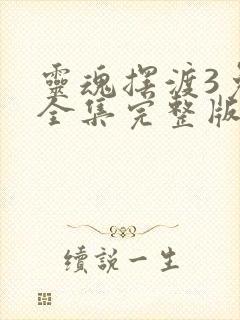 靈魂擺渡3
全集完整版
續説一生